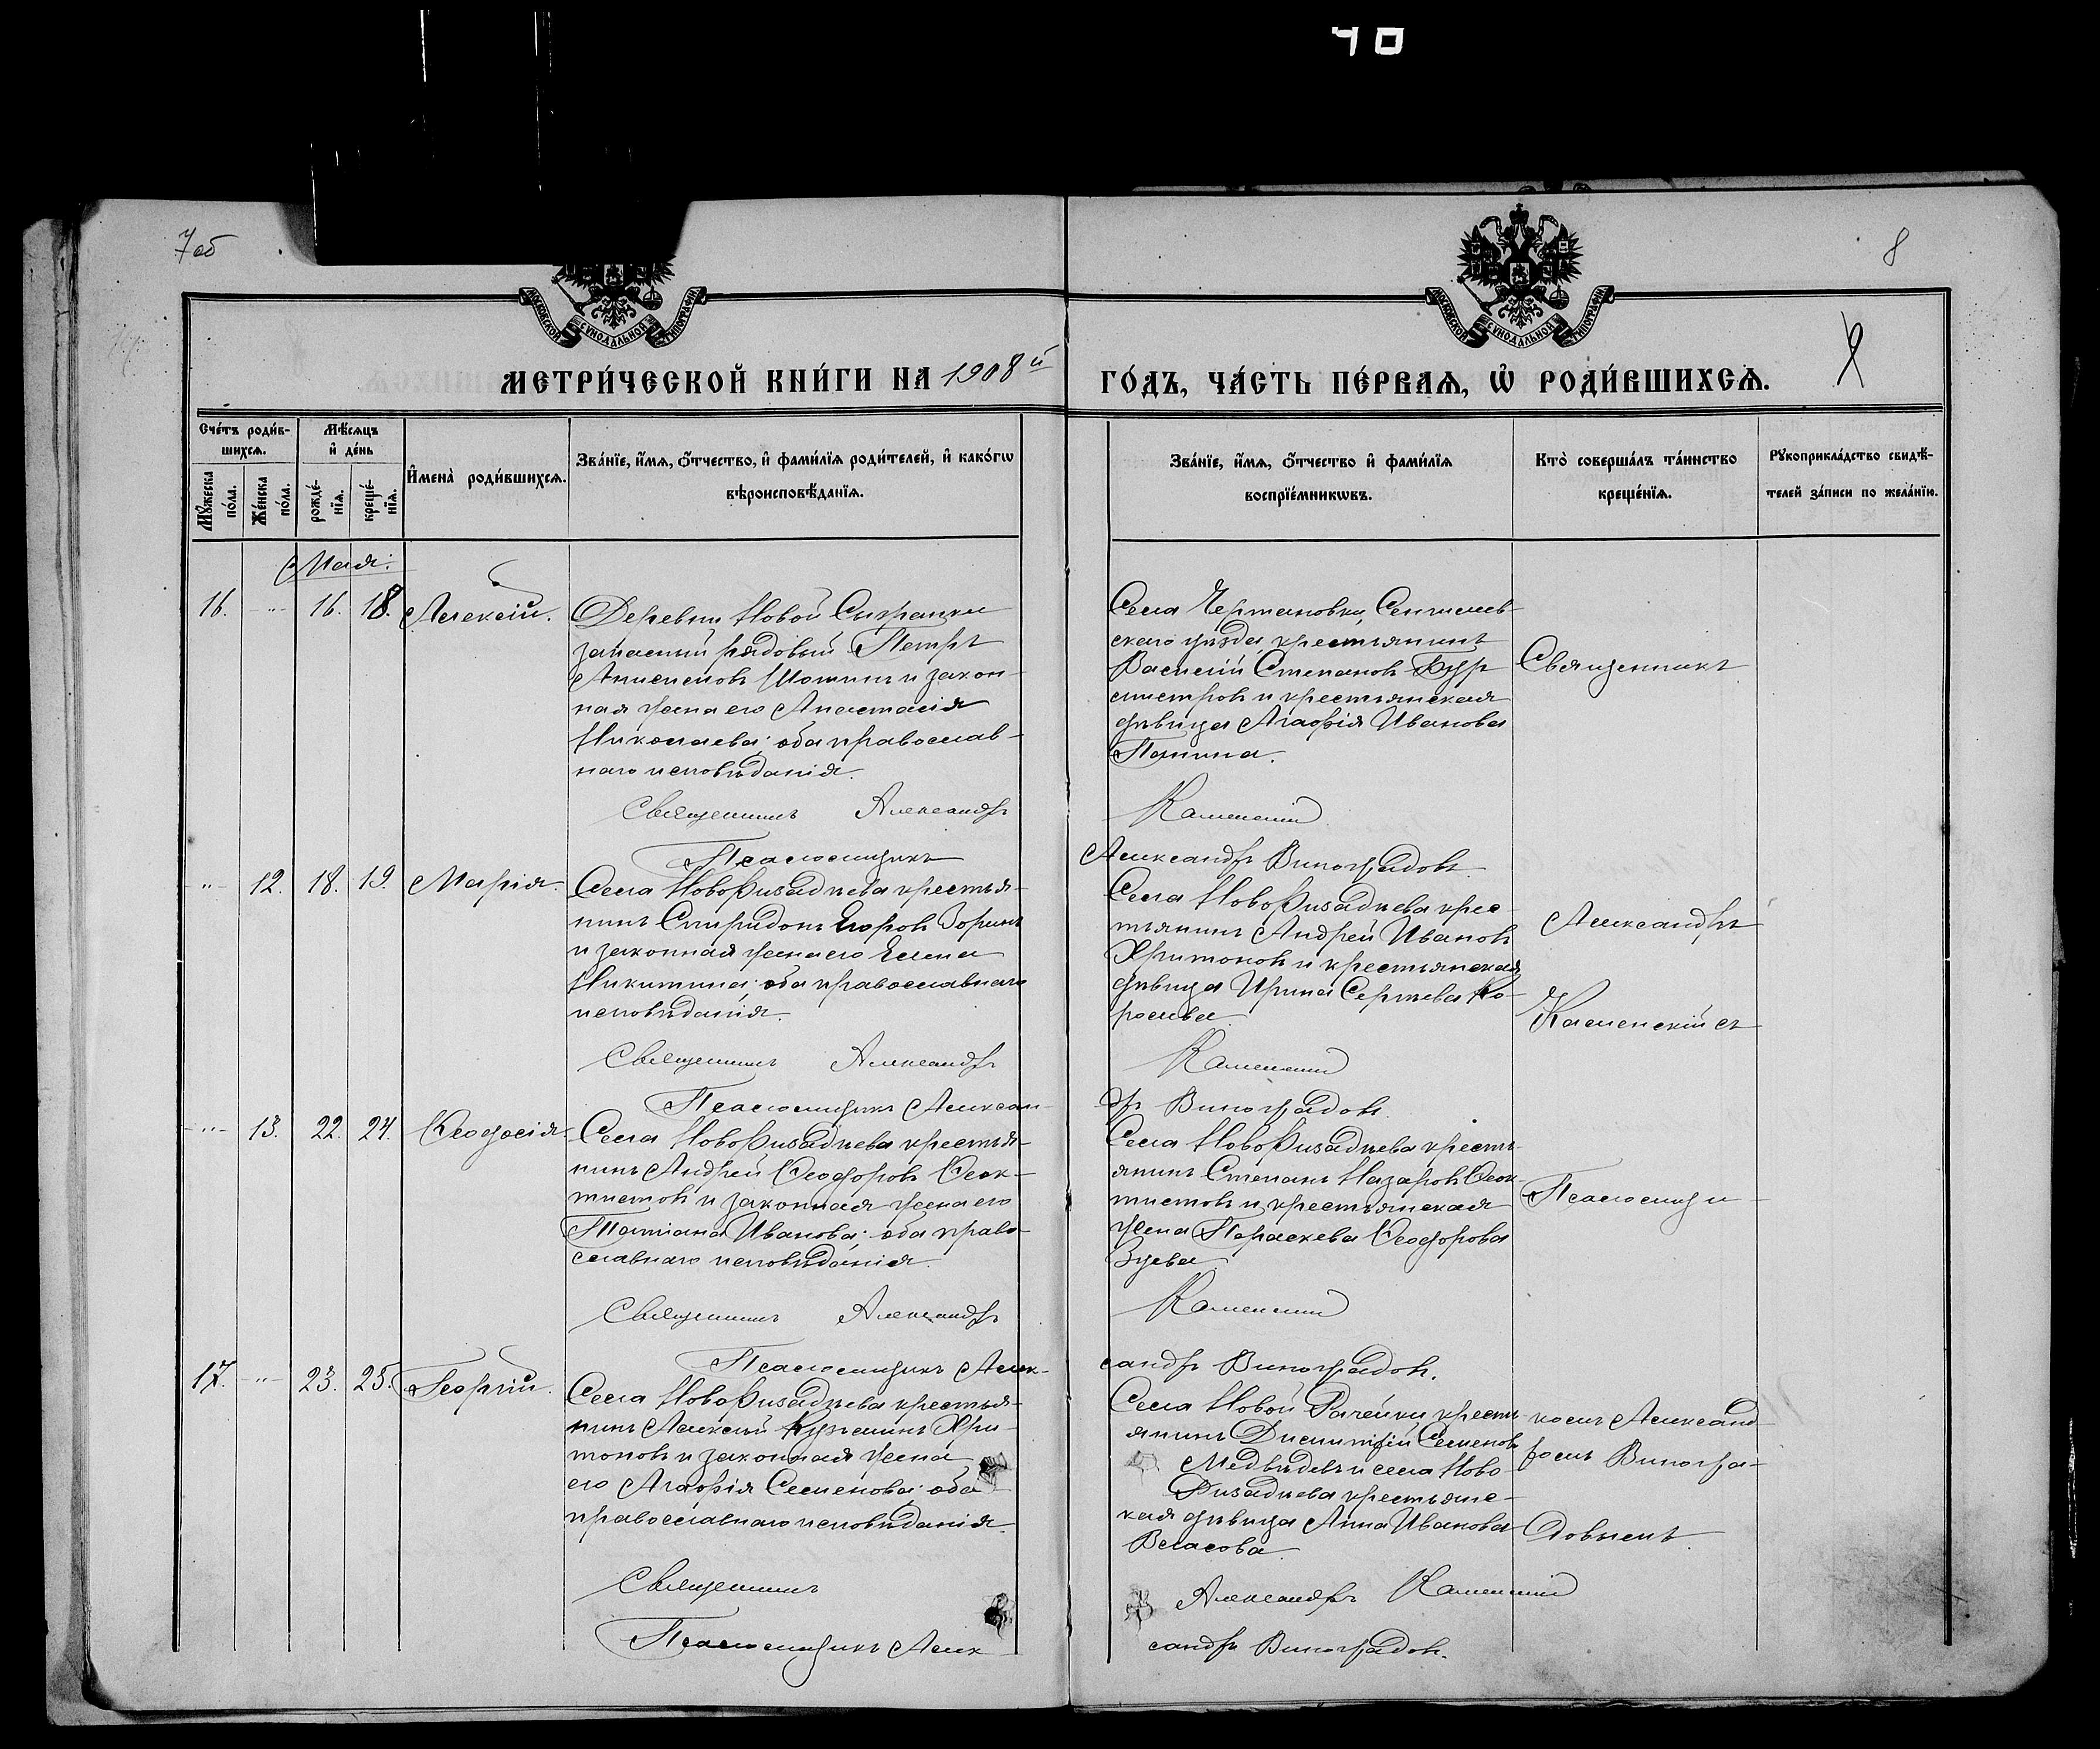 40
7об
8
МОСКОВСКОЙ СѴНОДАЛЬНОЙ ТИПОГРАФІИ
МОСКОВСКОЙ СѴНОДАЛЬНОЙ ТИПОГРАФІИ
МЕТРИ́ЧЕСКОЙ КНИ́ГИ НА 1908й ГО́ДЪ, ЧА́СТЬ ПЕ́РВАЯ, Ѡ҆ РОДИ́ВШИХСЯ.
Сче́тъ роди́в-
шихся.
Мѣ́сяцъ
и҆ де́нь
Му́жеска по́ла.
Же́нска по́ла.
рожде́-нїя.
креще́-нїя.
И҆мена̀ роди́вшихся.
Зва́нїе, и҆́мя, ѻ҆́тчество, и҆ фами́лїя роди́телей, и҆ како́гѡ
вѣроисповѣ́данїя.
Зва́нїе, и҆́мя, ѻ҆́тчество и҆ фами́лїя
воспрїе́мникѡвъ.
Кто̀ соверша́лъ та́инство
креще́нїя.
Рꙋкоприкла́дство свидѣ́-
телей за́писи по жела́нїю.
Мая.
16. -"- 16. 18. Алексій.
Деревни Новой Сызранки
запасный рядовый Петръ
и закон-
ная жена его Анастасія
Николаева; оба православ-
наго исповѣданія.
Села Чертановки, Сенгилеев-
скаго уѣзда крестьянинъ
Василій Степановъ Бур
мистровъ и крестьянская
дѣвица Агафія Иванова
Панина.
Священникъ Александръ Каменскій
Псаломщикъ Александръ Виноградовъ.
" 12. 18. 19. Марія.
Села НовоФизадѣева крестья-
нинъ Спиридонъ Егоровъ Зоринъ
и законная жена его Елена
Никитина; оба православнаго
исповѣданія.
Села НовоФизадѣева крес-
тьянинъ Андрей Ивановъ
Хритоновъ и крестьянская
дѣвица Ирина Сергѣева Ко-
ролева.
Священникъ Александръ Каменскій
Псаломщикъ Александръ Виноградовъ.
-"- 13. 22. 24. Ѳеодосія.
Села НовоФизадѣева крестья-
нинъ Андрей Ѳеодоровъ Ѳеок-
тистовъ и законная жена его
Татіана Иванова; оба право-
славнаго исповѣданія.
Села НовоФизадѣева кресть-
янинъ Степанъ Назаровъ Ѳеок-
тистовъ и крестьянская
жена Параскева Ѳеодорова
Зуева.
Священникъ Александръ Каменскій
Псаломщикъ Александръ Виноградовъ.
17. -"- 23. 25. Георгій.
Села НовоФизадѣева крестья-
нинъ Алексій Кузьминъ Хри-
тоновъ и законная жена
его Агафія Семенова; оба
православнаго исповѣданія.
Села Новой Рачейки кресть-
янинъ Димитрій Семеновъ
Медвѣдевъ и села Ново-
Физадѣева крестьянс-
кая дѣвица Анна Иванова
Власова.
Священникъ Александръ Каменскій
Псаломщикъ Александръ Виноградовъ.
Священникъ
Александръ
Каменскій съ
Псаломщи
комъ Александ
ромъ Виногра-
довымъ.